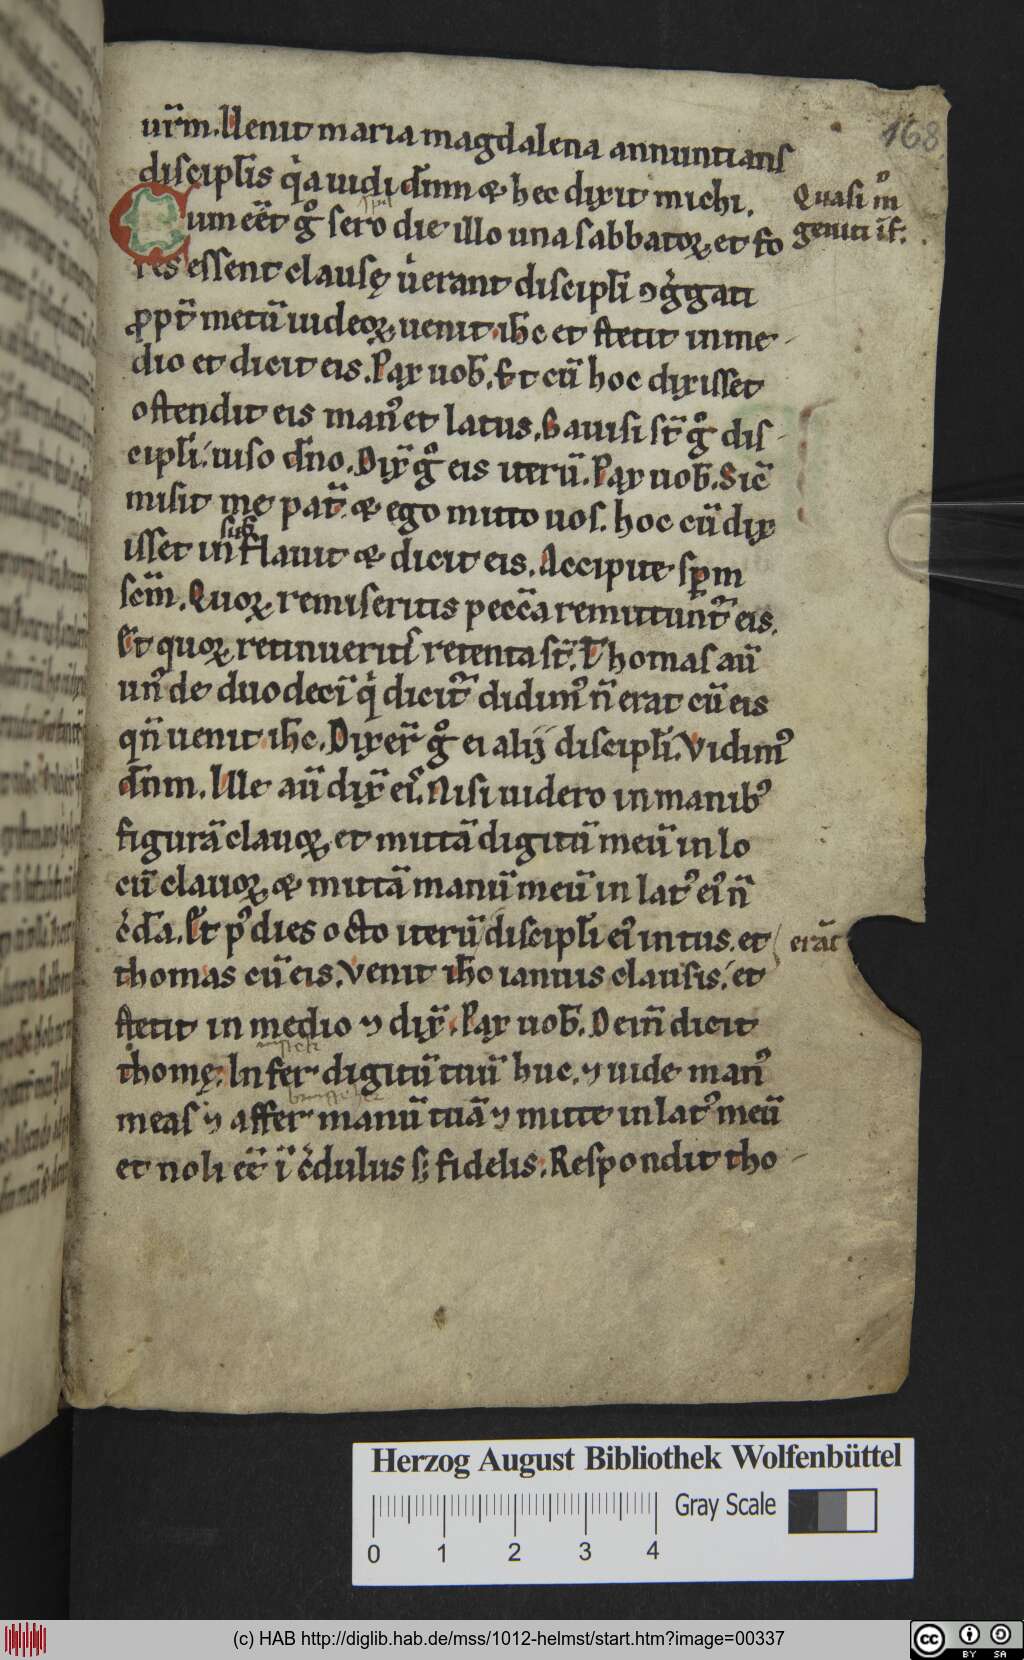 168
ur̄m. Uenit maria magdalena annuntians
discipl̄is q̇a uidi dn̄m & hec dixit michi.
Quasi m̊
geniti īf.
Cum eēt gͦ sero die illo una sabbatoꝝ et fo
res essent clausę u̇erant discipl̄i ꝯġgati
ꝓpt̄ metū iudeoꝝ uenit ih̄c et stetit in me
dio et dicit eis. Pax uob̄. Et cū hoc dixisset
ostendit eis man᾽ et latus. Gauisi st̄ gͦ dis
cipl̄i uiso dn̄o. Dix̄ gͦ eis iterū. Pax uob̄. Sic̄
misit me pat̄ & ego mitto uos. hoc cū dix
isset insuf
flauit & dicit eis. Accipite sp̄m
sc̄m. Quoꝝ remiseritis pecc̄a remittunt᾽ eis.
Et quoꝝ retinueritis retenta st̄. Thomas aū
un᾽ de duodecī q̇ dicit᾽ didim᾽ n̄ erat cū eis
qn̄ uenit ih̄c. Dixer̄ gͦ ei alij discipl̄i. Vidim᾽
dn̄m. Ille aū dix̄ ei᾽. Nisi uidero in manib᾽
figurā clauoꝝ et mittā digitū meū in lo
cū clauoꝝ & mittā manū meū in lat᾽ ei᾽ n̄
c̓da. Et p᾽ dies octo iterū discipl̄i ei᾽ intus. et
erāt
thomas cū eis. Venit ih̄c ianuis clausis. et
stetit in medio ⁊ dix̄. Pax uob̄. Dein̄ dicit
thomę. Infer digitū tuū huc. ⁊ uide man᾽
meas ⁊ affer manū tuā ⁊ mitte in lat᾽ meū
et noli eē ī c̓dulus s; fidelis. Respondit tho
Herzog August Bibliothek Wolfenbüttel
Gray Scale
0 1 2 3 4
(c) HAB http://diglib.hab.de/mss/1012-helmst/start.htm?image=00337
cc BY SA